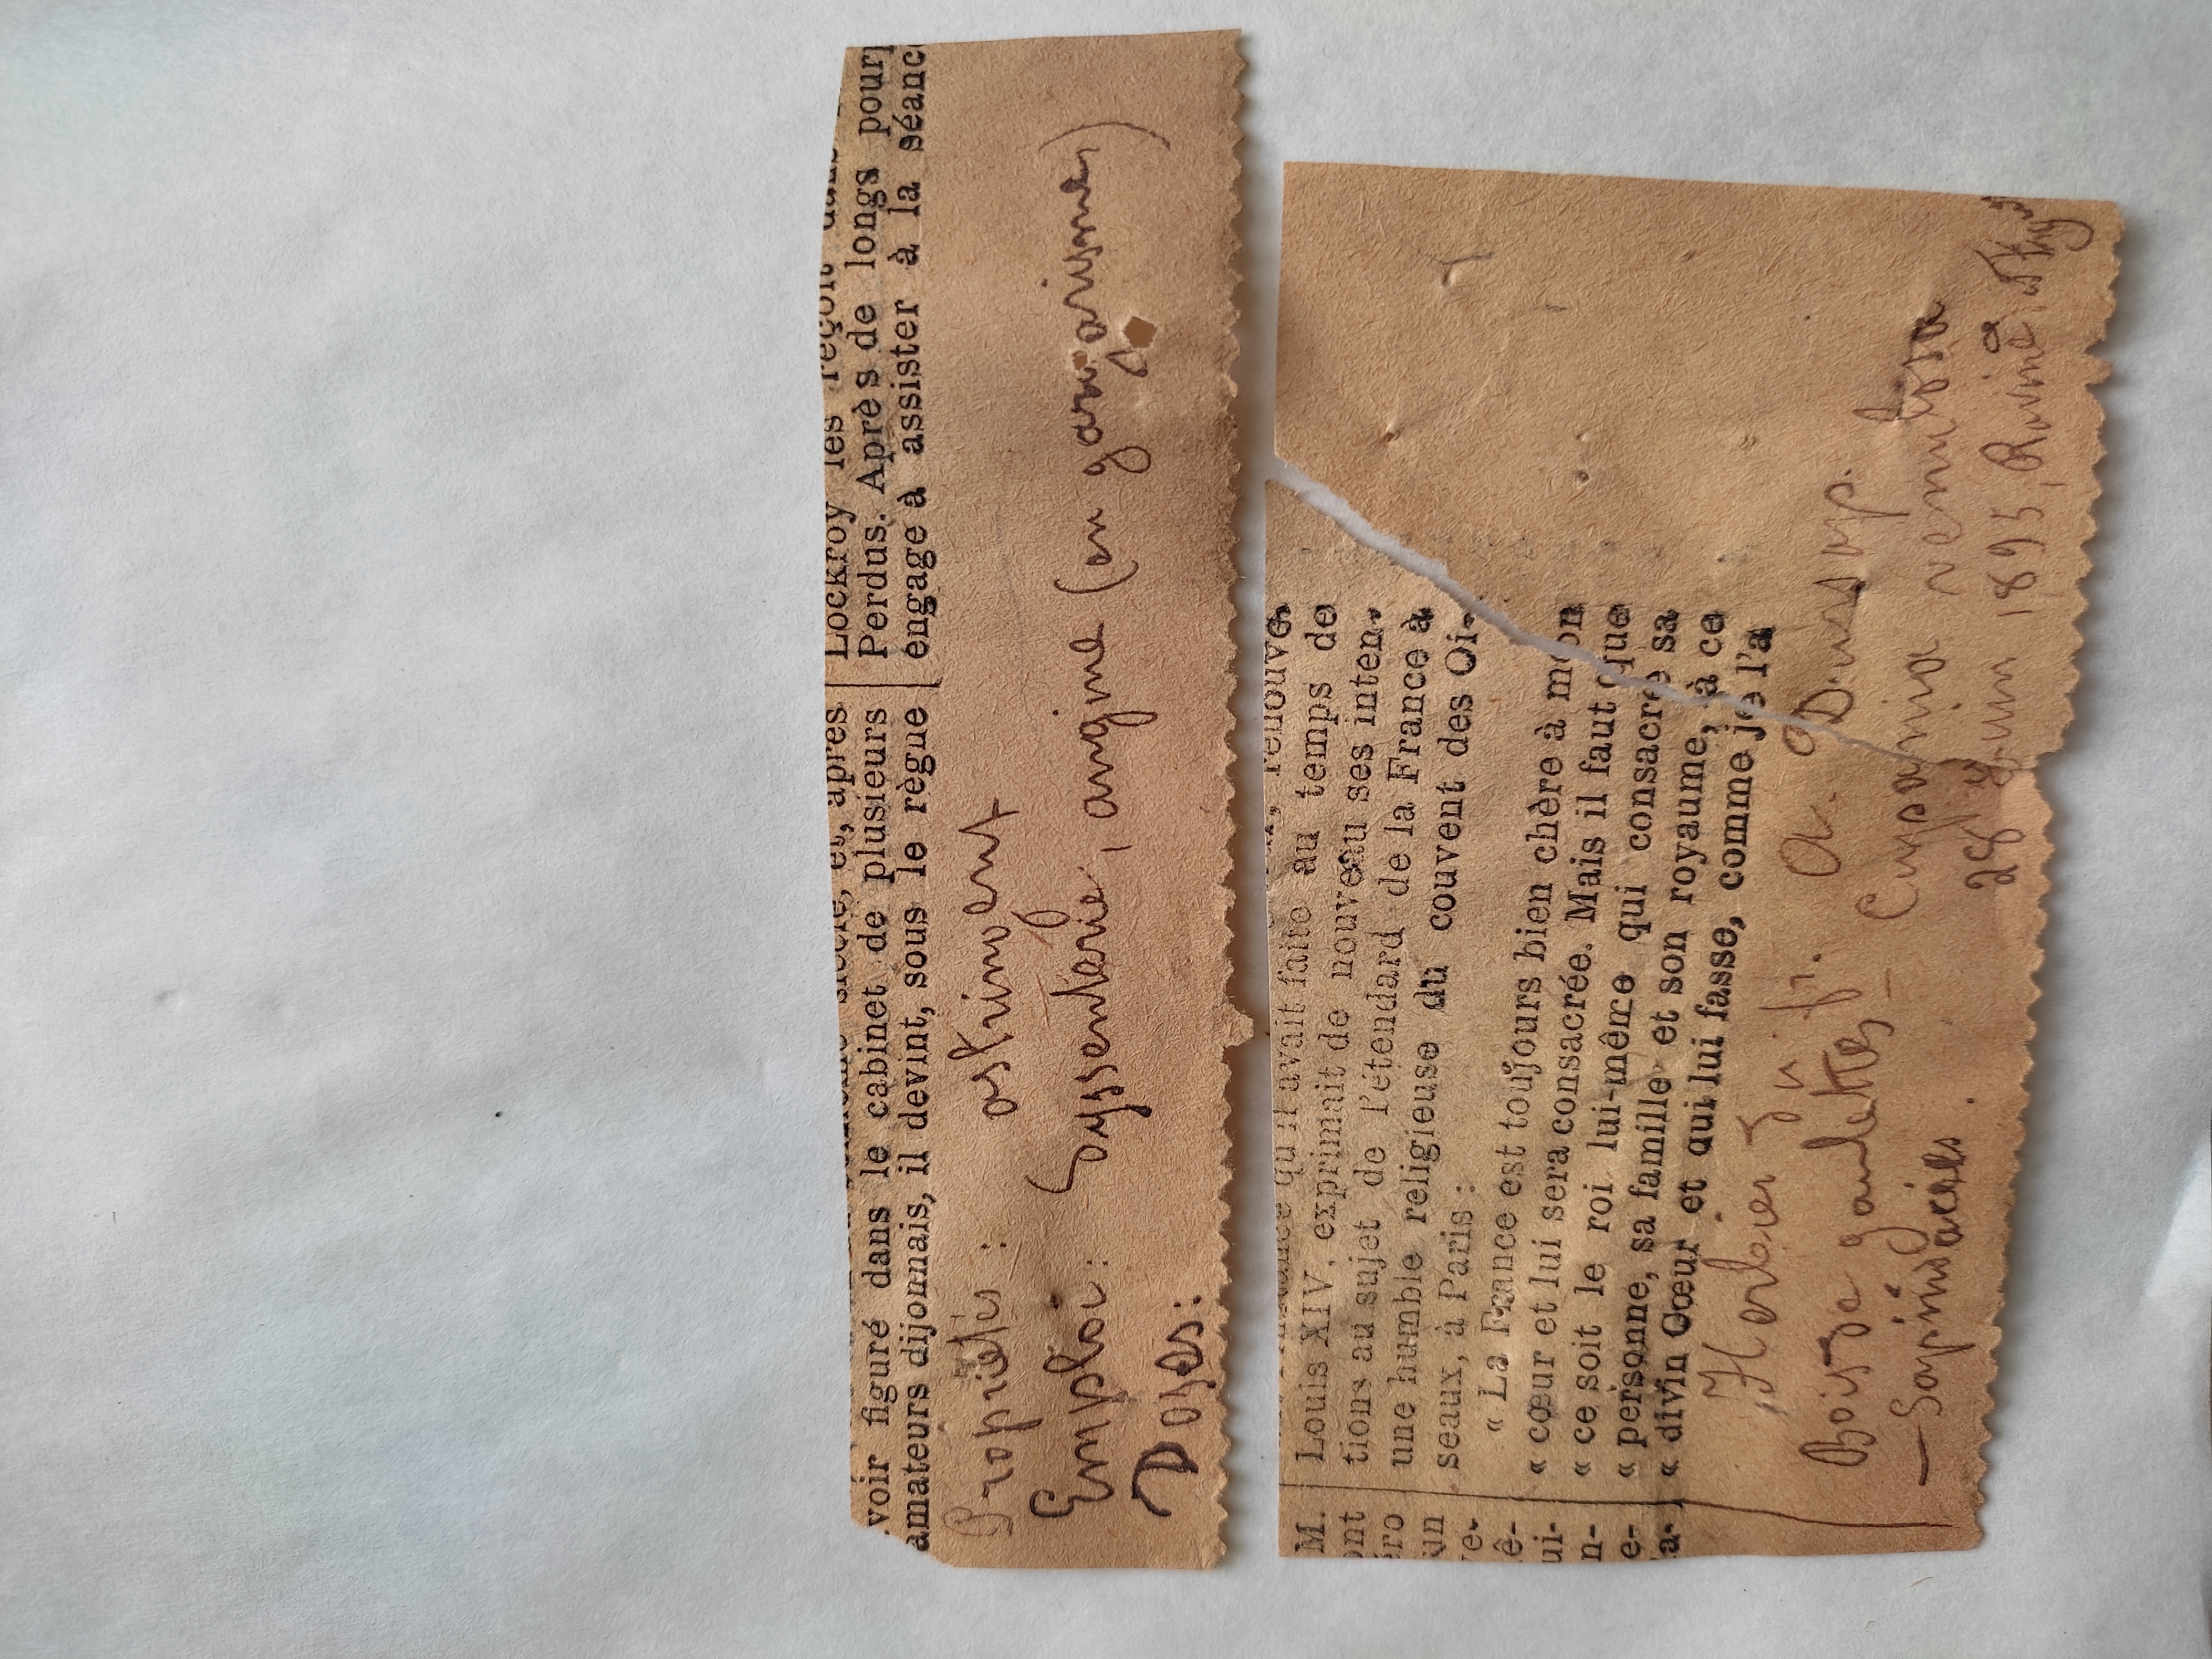 Lockroy les reçoit dans
Perdus. Après de longs pour
engage à assister à la séanc
siècle, et, après
voir figuré dans le cabinet de plusieurs
amateurs dijonnais, il devint, sous le règne
Propriétés : astringent
Emploi : Dyssenterie, angine (en gargarisme)
Doses :
renouve-
qu'il avait faite au temps de
Louis XIV, exprimait de nouveau ses inten-
tions au sujet de l'étendard de la France à
une humble religieuse du couvent des Oi-
seaux, à Paris :
« La France est toujours bien chère à mon
« cœur et lui sera consacrée. Mais il faut que
« ce soit le roi lui-même qui consacre sa
« personne, sa famille et son royaume, à ce
« divin Cœur et qui lui fasse, comme je l'a
M.
ont
éro
un
ve-
ê-
ui-
n-
e-
la-
Herbier
Bois de gaulettes — Cupania
— Sapindacées.
28 juin 1895, Ravine